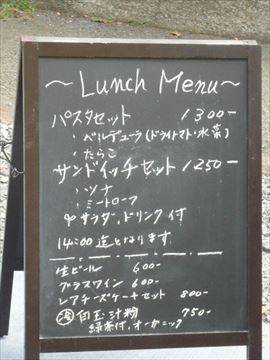 ～Lunch Menu～
パスタセット 1300-
・ベルデューラ(ドライトマト・水菜)
・たらこ
サンドイッチセット 1250-
・ツナ
・ミートローフ
サラダ、ドリンク付
14:00迄となります
生ビール 600-
グラスワイン 600-
レアチーズケーキセット 800-
白玉汁粉 750-
緑茶付、オーガニック